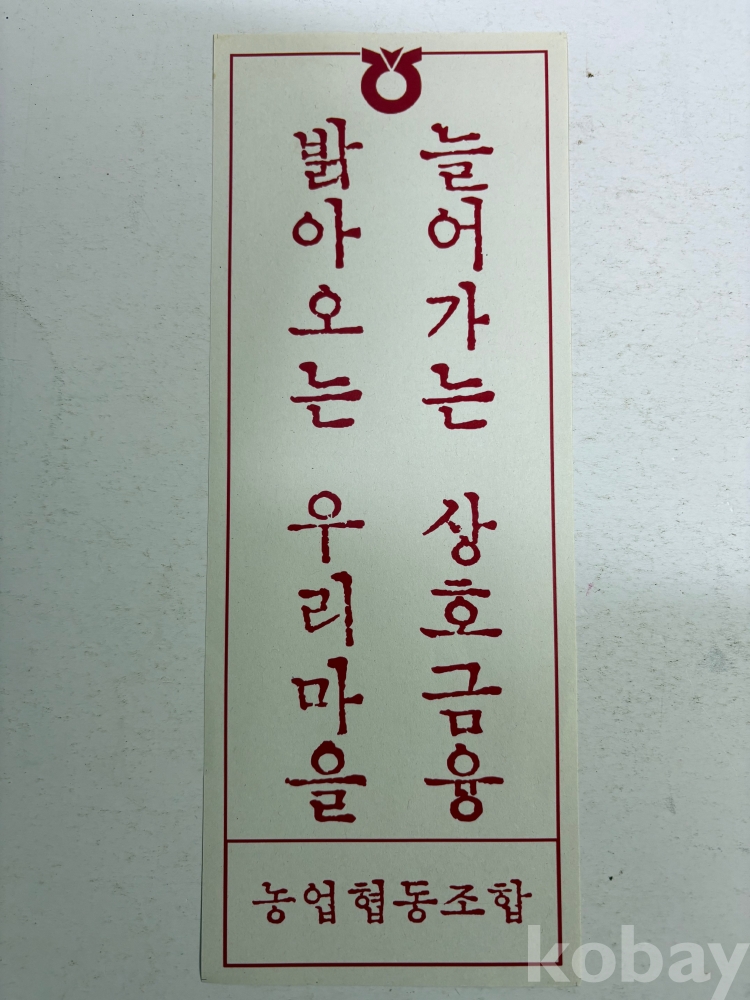 늘어가는 상호금융
밝아오는 우리마을
농업협동조합
kobay